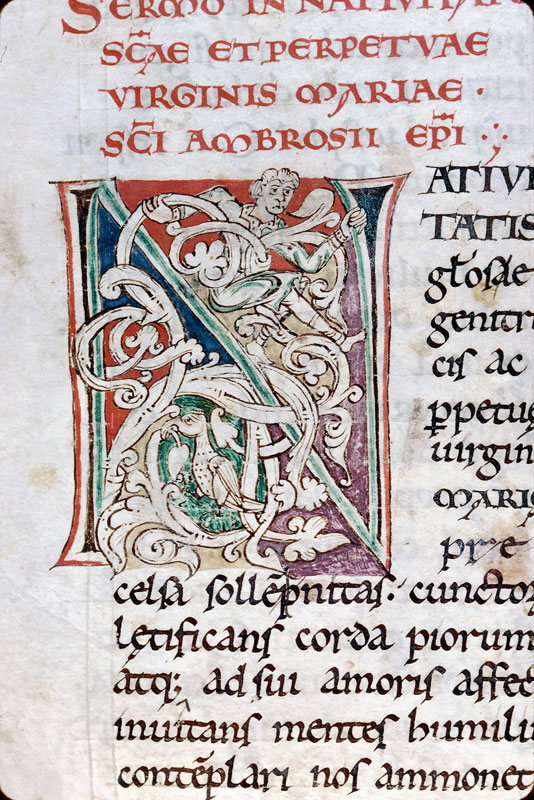 SERMO IN NATIVITAT
SC̄AE ET PERPETVAE
VIRGINIS MARIAE ·
SC̄I AMBROSII EP̄I
NATIVI
TATIS
gl̄osae
genitri
cis ac
ꝑpetuę
uirgin
MARIA
prae
celsa sollēpnitas · cunctor
lętificans corda piorum
atq; ad sui amoris affec
inuitans mentes humiliu
contēplari nos ammonet